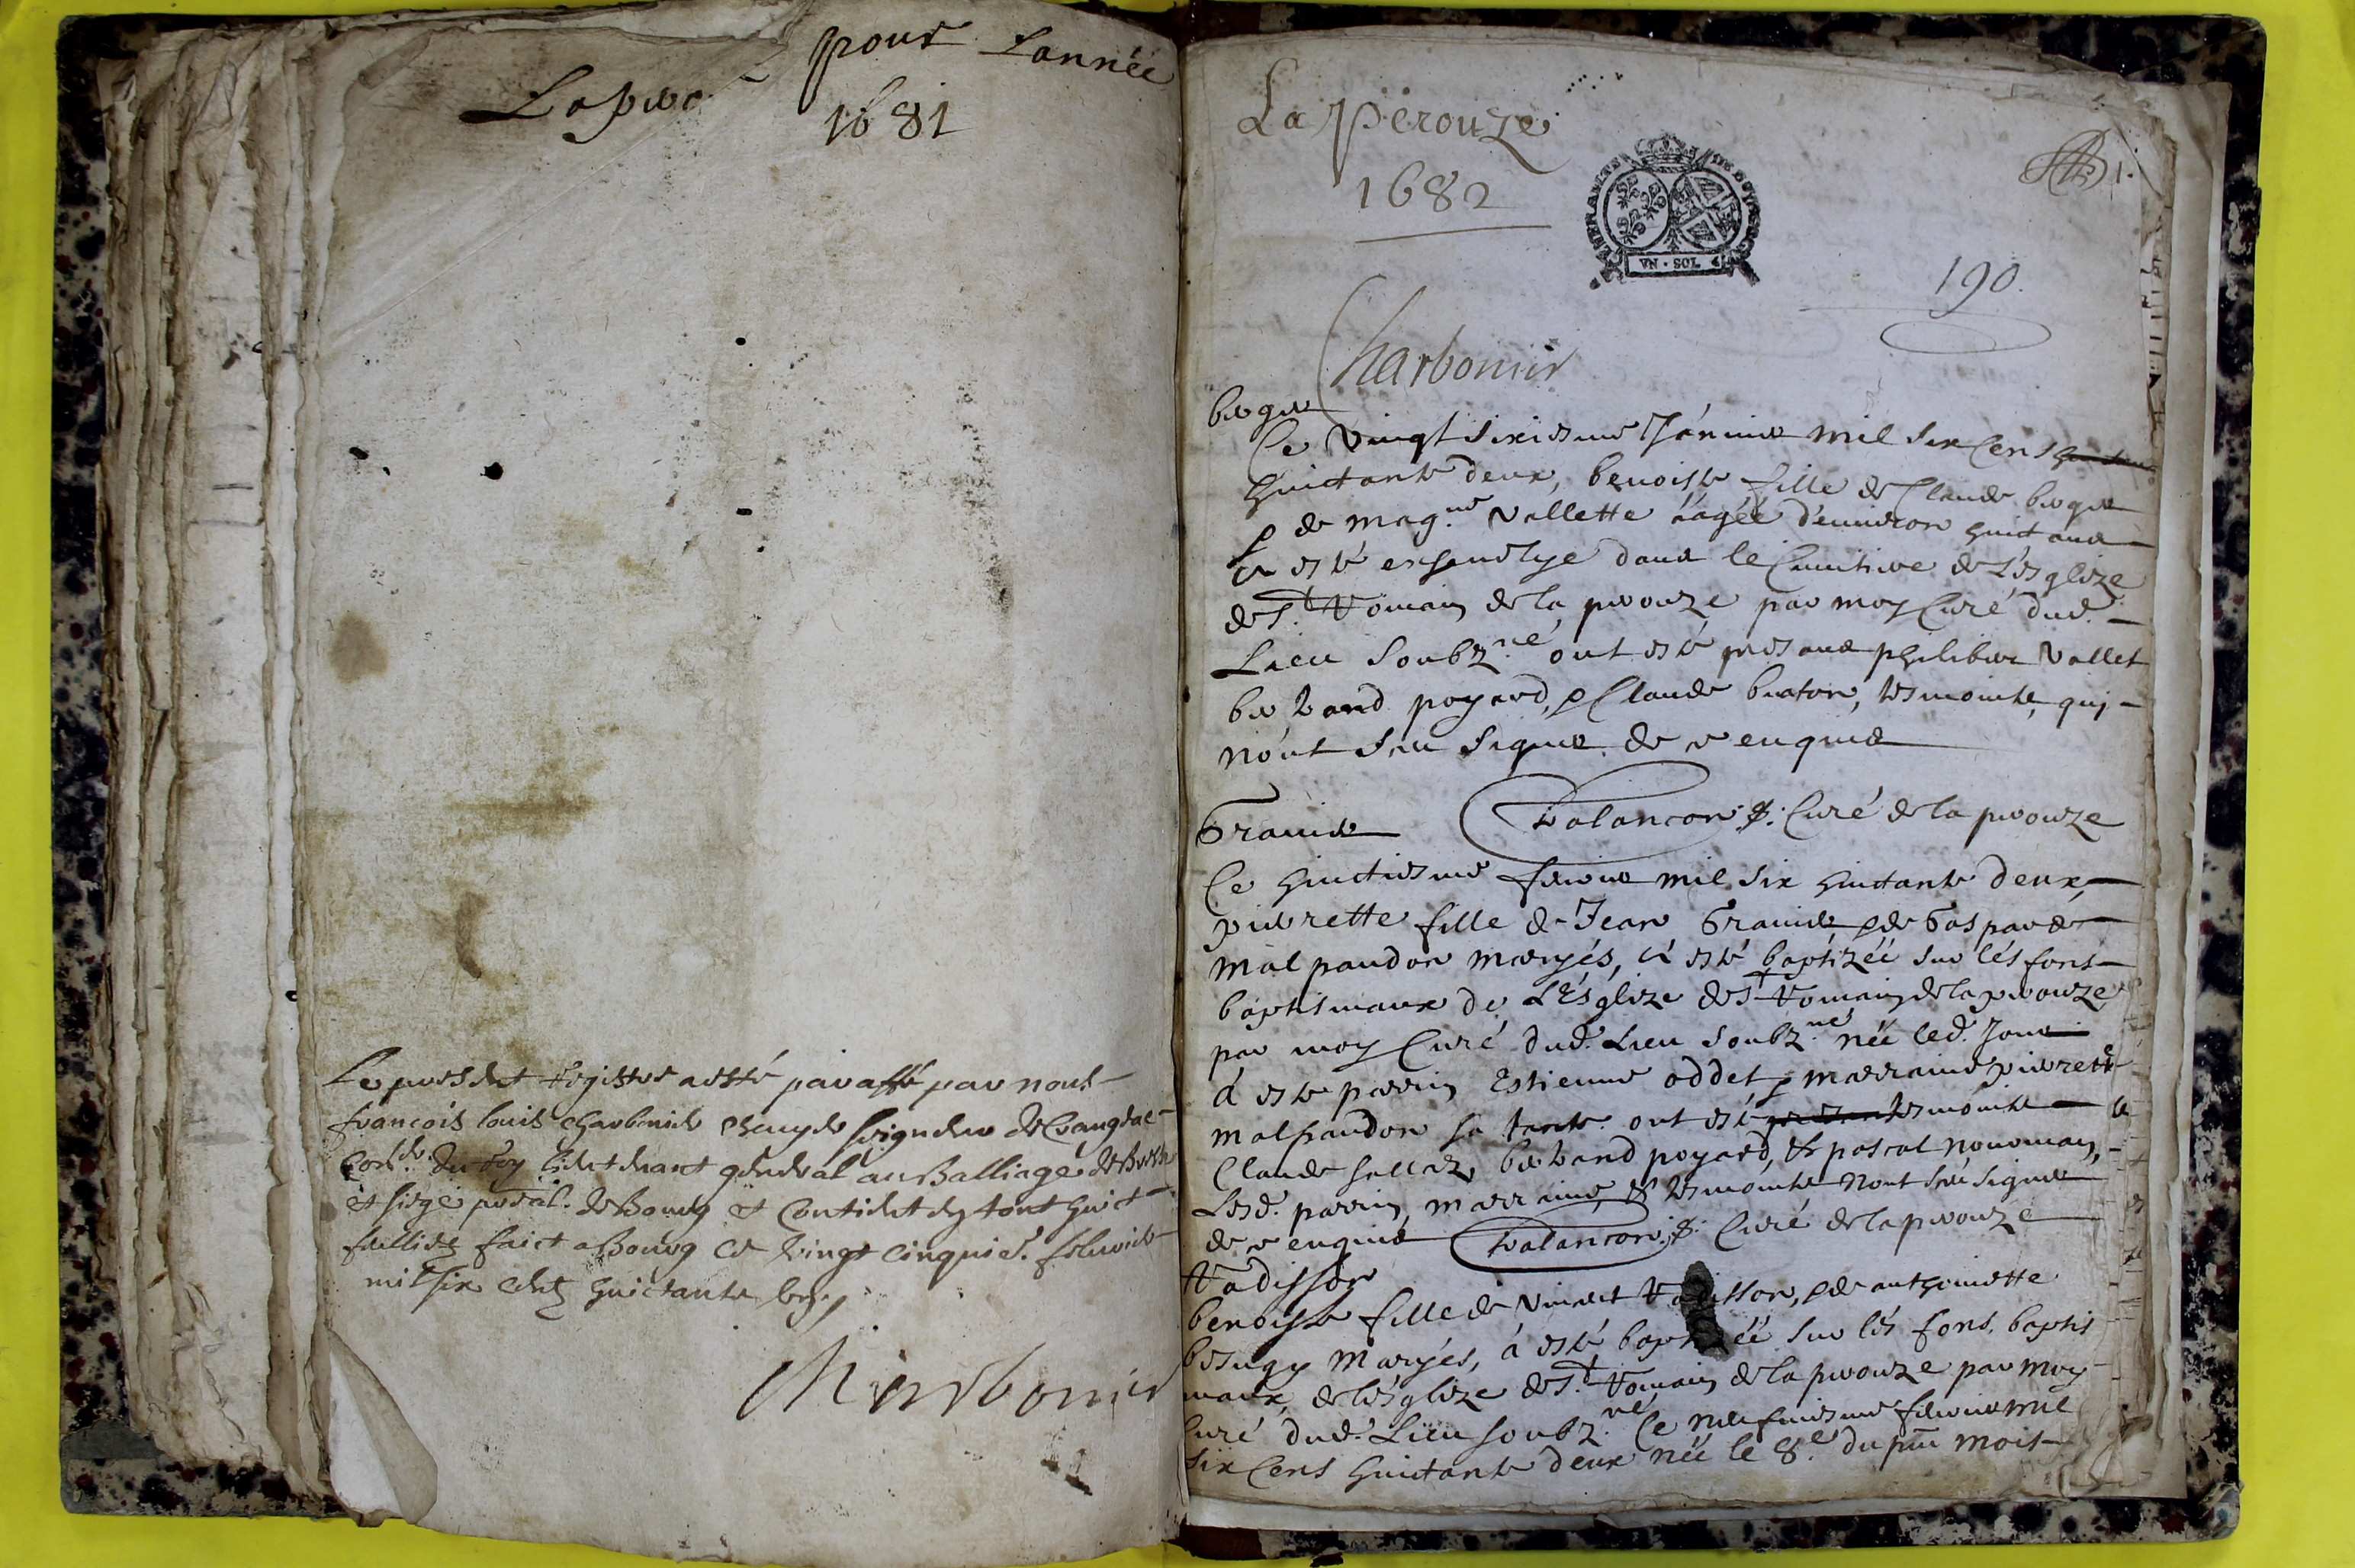 pour Lannée
1681
Le present Registre a esté paraffé par nous
françois louis charbonier escuyer seigneur de Crangeac
Con.er du Roy lieutenant general au Balliage de Bresse
et siege pre͞al. de Bourg et Contient en tout huict
feullietz faict a Bourg ce vingt cinquie.e febvrier
mil six centz huictante
Charbonier
La Perouze
1682
VN · SOL
190.
Charbonier
Ce vingt sixiesme Janvier mil six Cens
huictante deux, benoiste fille de Claude
& de mag.ne Vallette aagée d'environ huict ans
a esté ensevelye dans le Cimitiere de L'esglize
de S.t Romain de la perouze par moy Curé dud.
Lieu soubz.né ont esté presans philibert Vallet
bertrand poyard, & Claude breton, tesmoints, qui
n'ont sceu signer de ce enquis
Gravier
Talancon p: Curé de la perouze
Ce huictiesme febvrier mil six huictante deux,
pierrette fille de Jean Gravier & de Gasparde
malpaudon maryés, a esté baptizéé sur lés fons
baptismaux de L'Esglize de S.t Romain de la perouze
par moy Curé dud. Lieu soubz.né née led. Jour
a esté parrin Estienne oddet & marraine pierrette
malpaudon sa tante ont esté tesmoints
Claude bertrand poyard, &
Lesd. parrin, marraine, & tesmoints n'ont sceu signer
de ce enquis Talancon p: Curé de la perouze
Radisson
benoiste fille de Vincent Radisson, & de anthoinette
maryés, á esté baptizéé sur lés fons baptis
maux de lésglize de S.t Romain de la perouze par moy
Curé dud. Lieu soubz.né Ce neufviesme febvrier mil
six Cens huictante deux née le 8.e du p͞nt mois